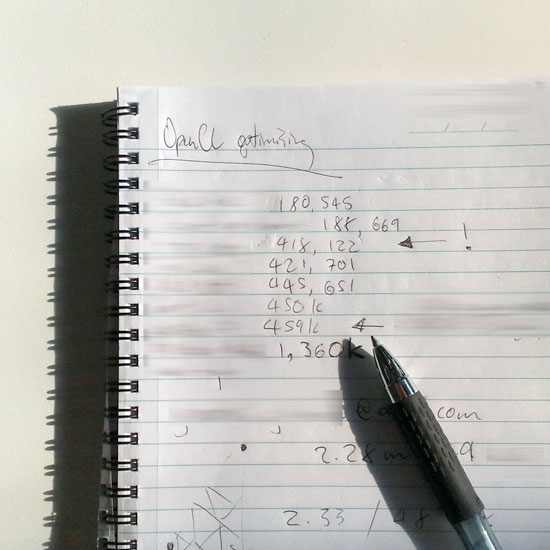 OpenCL optimising
180,545
188,669
418,122 ← !
421,701
445,651
450k
459k ←
1,360k
.com
2.28m
2.33 / 48